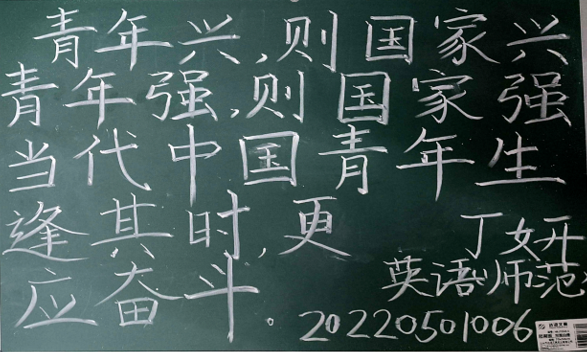 青年兴,则国家兴
青年强,则国家强
当代中国青年生
逢其时,更
应奋斗.
丁妍
英语师范
20220501006